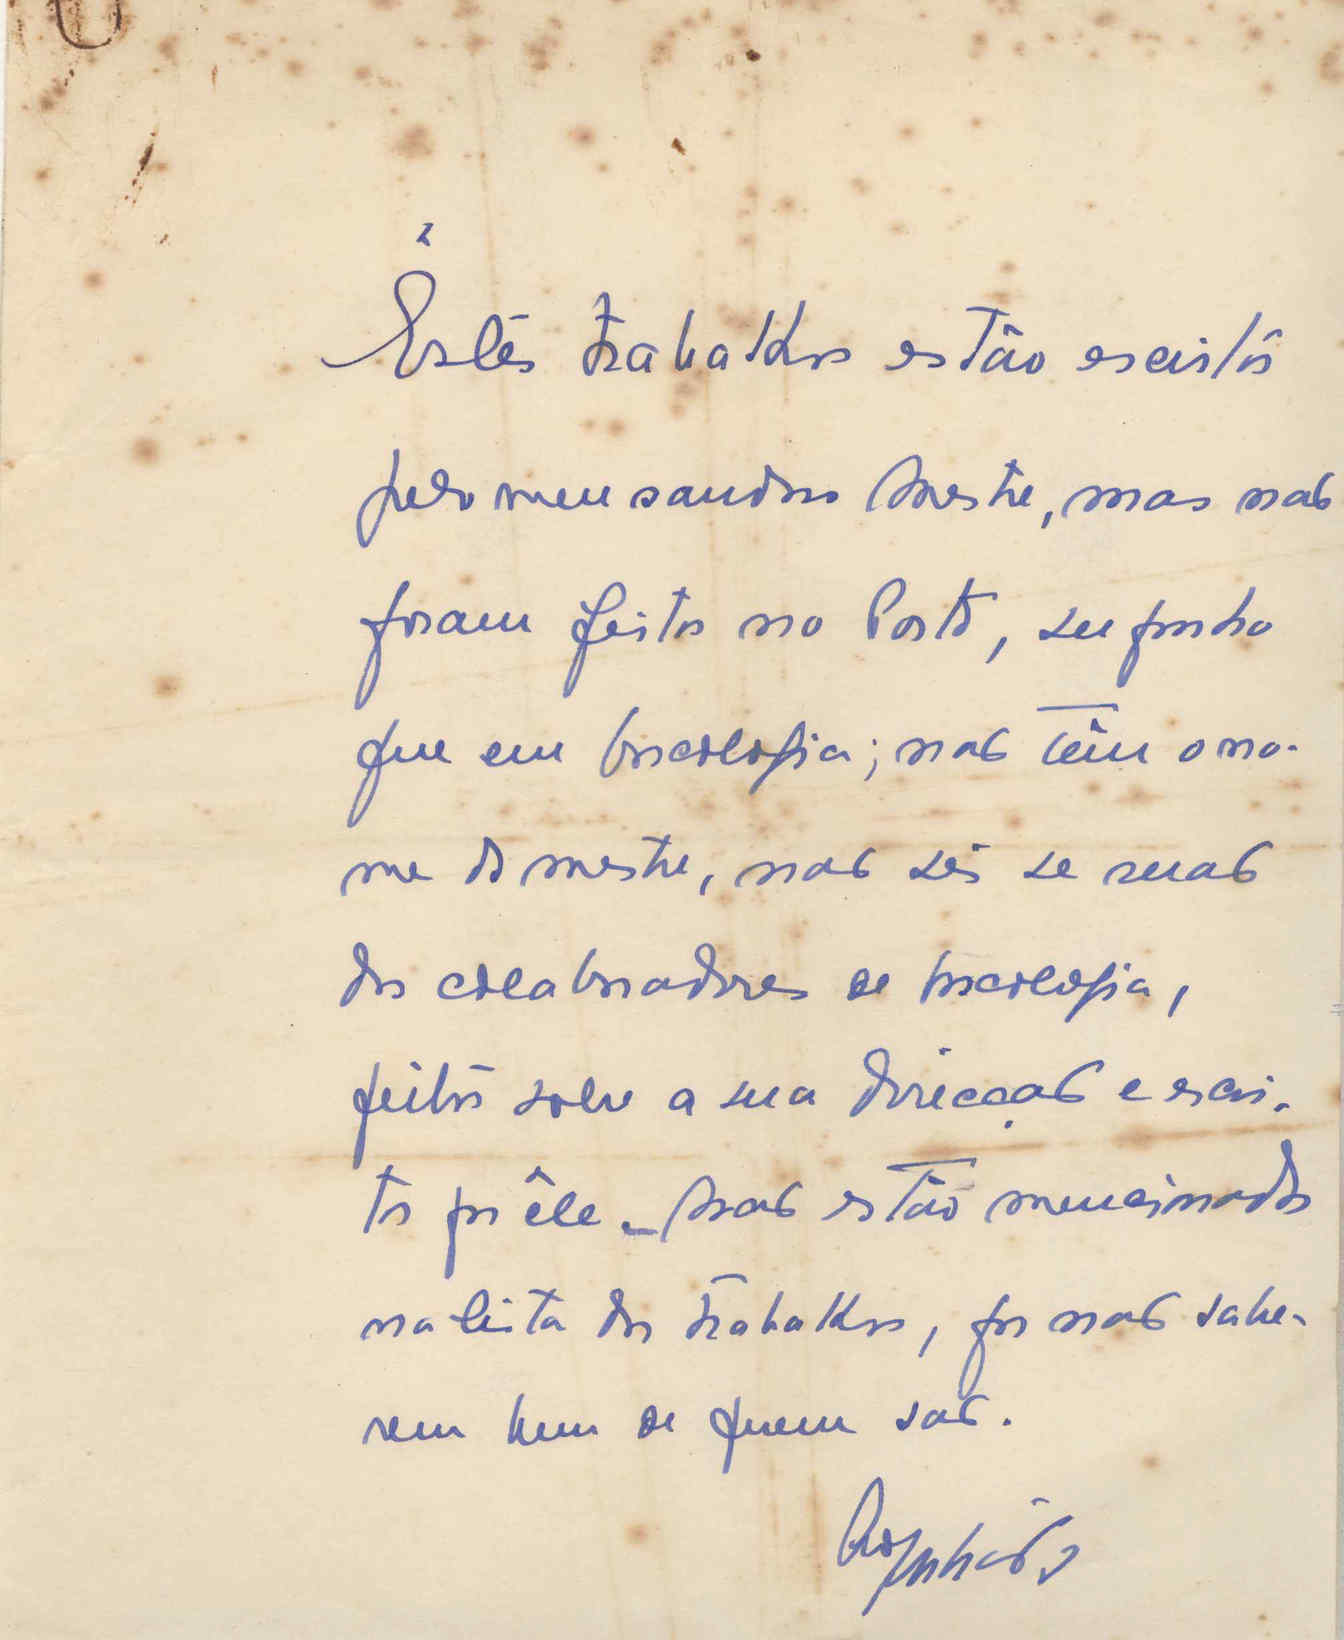 Êstes trabalhos estão escritos
pelo meu saudoso Mestre, mas não
foram feitos no Porto, suponho
que em Psicologia; não têm o no-
me do mestre, não sei se serão
dos colaboradores de Psicologia,
feitos sobre a sua direcção e escri-
tos por êle _ Não estão mencionados
na lista dos trabalhos, por não sabe-
rem bem de quem são.